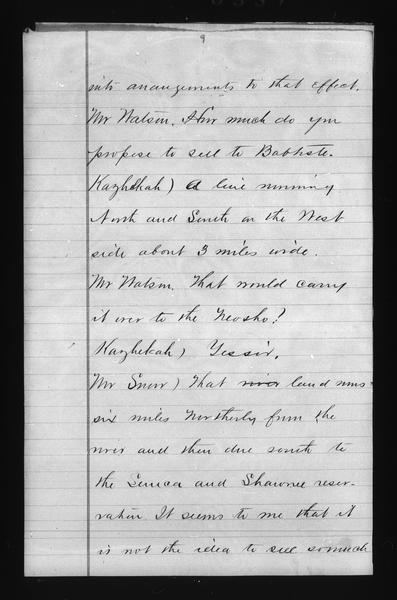 9
into arrangements to that effect.
Mr Watson. How much do you
propose to sell to Baptiste.
Kazhekah) A line running
North and South on the West
side about 3 miles wide.
Mr Watson. That would carry
it over to the Neosho?
Kazhekah) Yes sir.
Mr Snow) That river land runs
six miles Northerly from the
river and then due south to
the Seneca and Shawnee reser-
vation It seems to me that it
is not the idea to sell so much